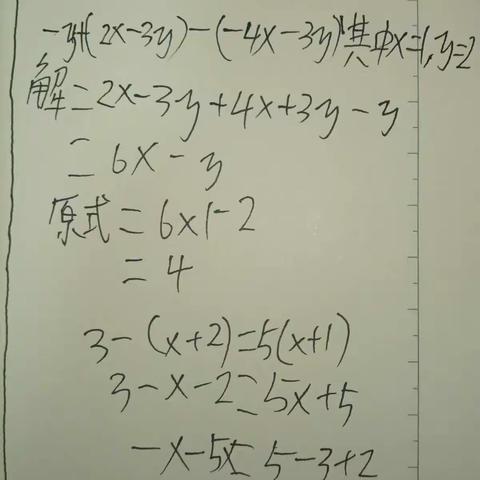 -y+(2x-3y)-(-4x-3y)其中x=1,y=2
解=2x-3y+4x+3y-y
=6x-y
原式=6×1-2
=4
3-(x+2)=5(x+1)
3-x-2=5x+5
-x-5x=5-3+2